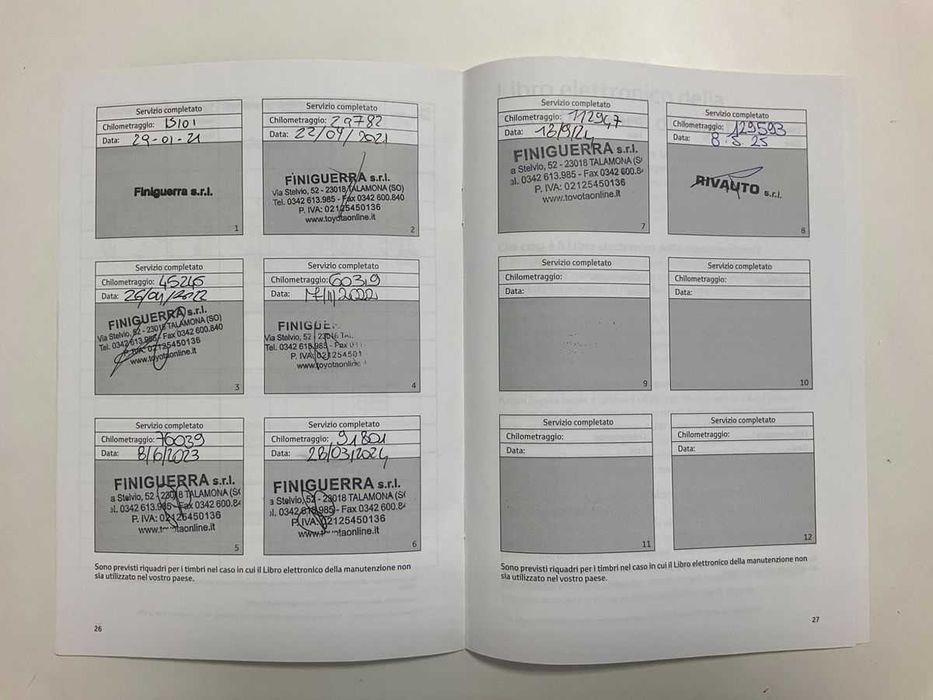 Servizio completato
Chilometraggio: 15101
Data: 29-01-21
Finiguerra s.r.l.
1
Servizio completato
Chilometraggio: 29782
Data: 22/04/2021
FINIGUERRA s.r.l.
Via Stelvio, 52 - 23018 TALAMONA (SO)
Tel. 0342 613.985 - Fax 0342 600.840
P. IVA: 02125450136
www.toyotaonline.it
2
Servizio completato
Chilometraggio: 45245
Data: 26/04/2022
FINIGUERRA s.r.l.
Via Stelvio, 52 - 23018 TALAMONA (SO)
Tel. 0342 613.985 - Fax 0342 600.840
P. IVA: 02125450136
www.toyotaonline.it
3
Servizio completato
Chilometraggio: 60319
Data: 17/11/2022
Via Stelvio, 52
Tel. 0342 613.985
4
Servizio completato
Chilometraggio: 76039
Data: 8/6/2023
FINIGUERRA s.r.l.
a Stelvio, 52 - 23018 TALAMONA (SO
el. 0342 613.985 - Fax 0342 600.84
P. IVA: 02125450136
5
Servizio completato
Chilometraggio: 91801
Data: 28/03/2024
FINIGUERRA s.r.l.
a Stelvio, 52 - 23018 TALAMONA (SO
el. 0342 613.985 - Fax 0342 600.84
P. IVA: 02125450136
6
Sono previsti riquadri per i timbri nel caso in cui il Libro elettronico della manutenzione non
sia utilizzato nel vostro paese.
26
Servizio completato
Chilometraggio: 112947
Data: 13/9/24
FINIGUERRA s.r.l.
a Stelvio, 52 - 23018 TALAMONA (S
el. 0342 613.985 - Fax 0342 600.8
P. IVA: 02125450136
www.toyotaonline.it
7
Servizio completato
Chilometraggio: 129593
Data: 8.5.25
RIVAUTO s.r.l.
8
Servizio completato
Chilometraggio:
Data:
9
Servizio completato
Chilometraggio:
Data:
10
Servizio completato
Chilometraggio:
Data:
11
Servizio completato
Chilometraggio:
Data:
12
Sono previsti riquadri per i timbri nel caso in cui il Libro elettronico della manutenzione non
sia utilizzato nel vostro paese.
27